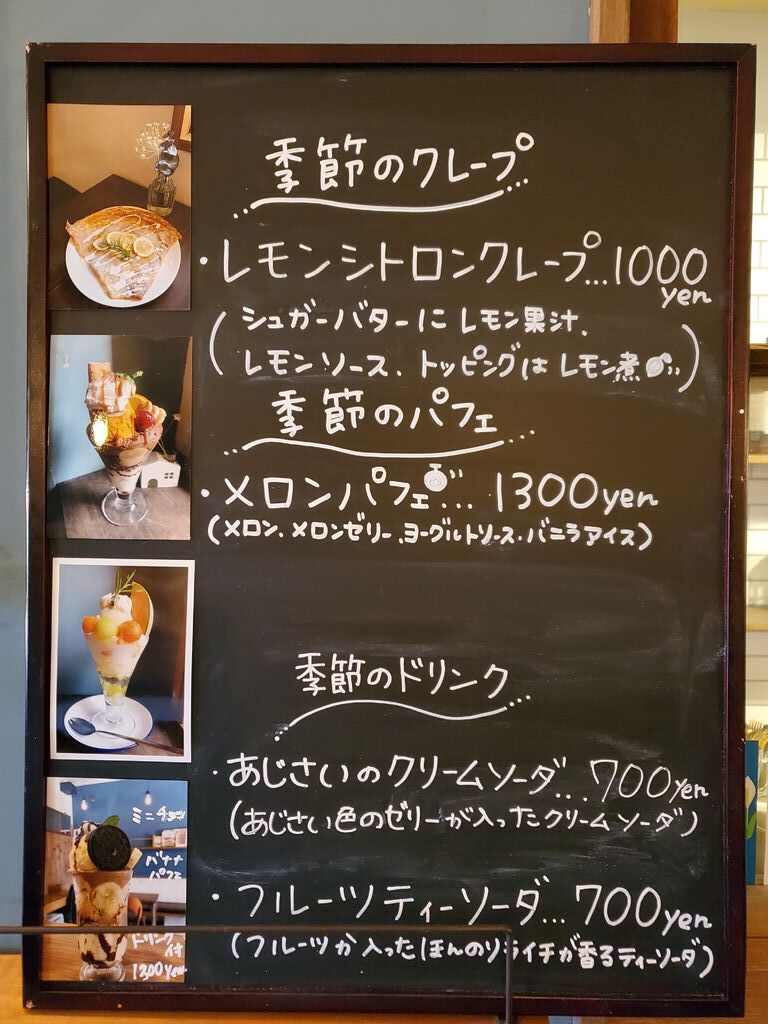 季節のクレープ
・レモンシトロンクレープ...1000yen
(シュガーバターに レモン果汁、
レモンソース、トッピングは レモン煮)
季節のパフェ
・メロンパフェ... 1300yen
(メロン、メロンゼリー、ヨーグルトソース・バニラアイス)
季節のドリンク
・あじさいのクリームソーダ...700yen
(あじさい色のゼリーが入ったクリームソーダ)
・フルーツティーソーダ...700yen
(フルーツが入ったほんのりライチが香るティーソーダ)
ミニチョコ
バナナ
パフェ
ドリンク
付
1300yen